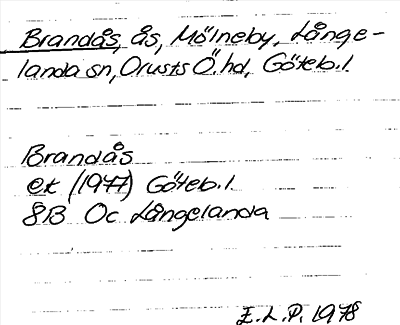 Brandås, ås, Mölneby, Långe-
landa sn, Orusts Ö. hd, Göteb. l.
Brandås
ek (1977) Göteb. l.
8B Oc Långelanda
E.L.P. 1978